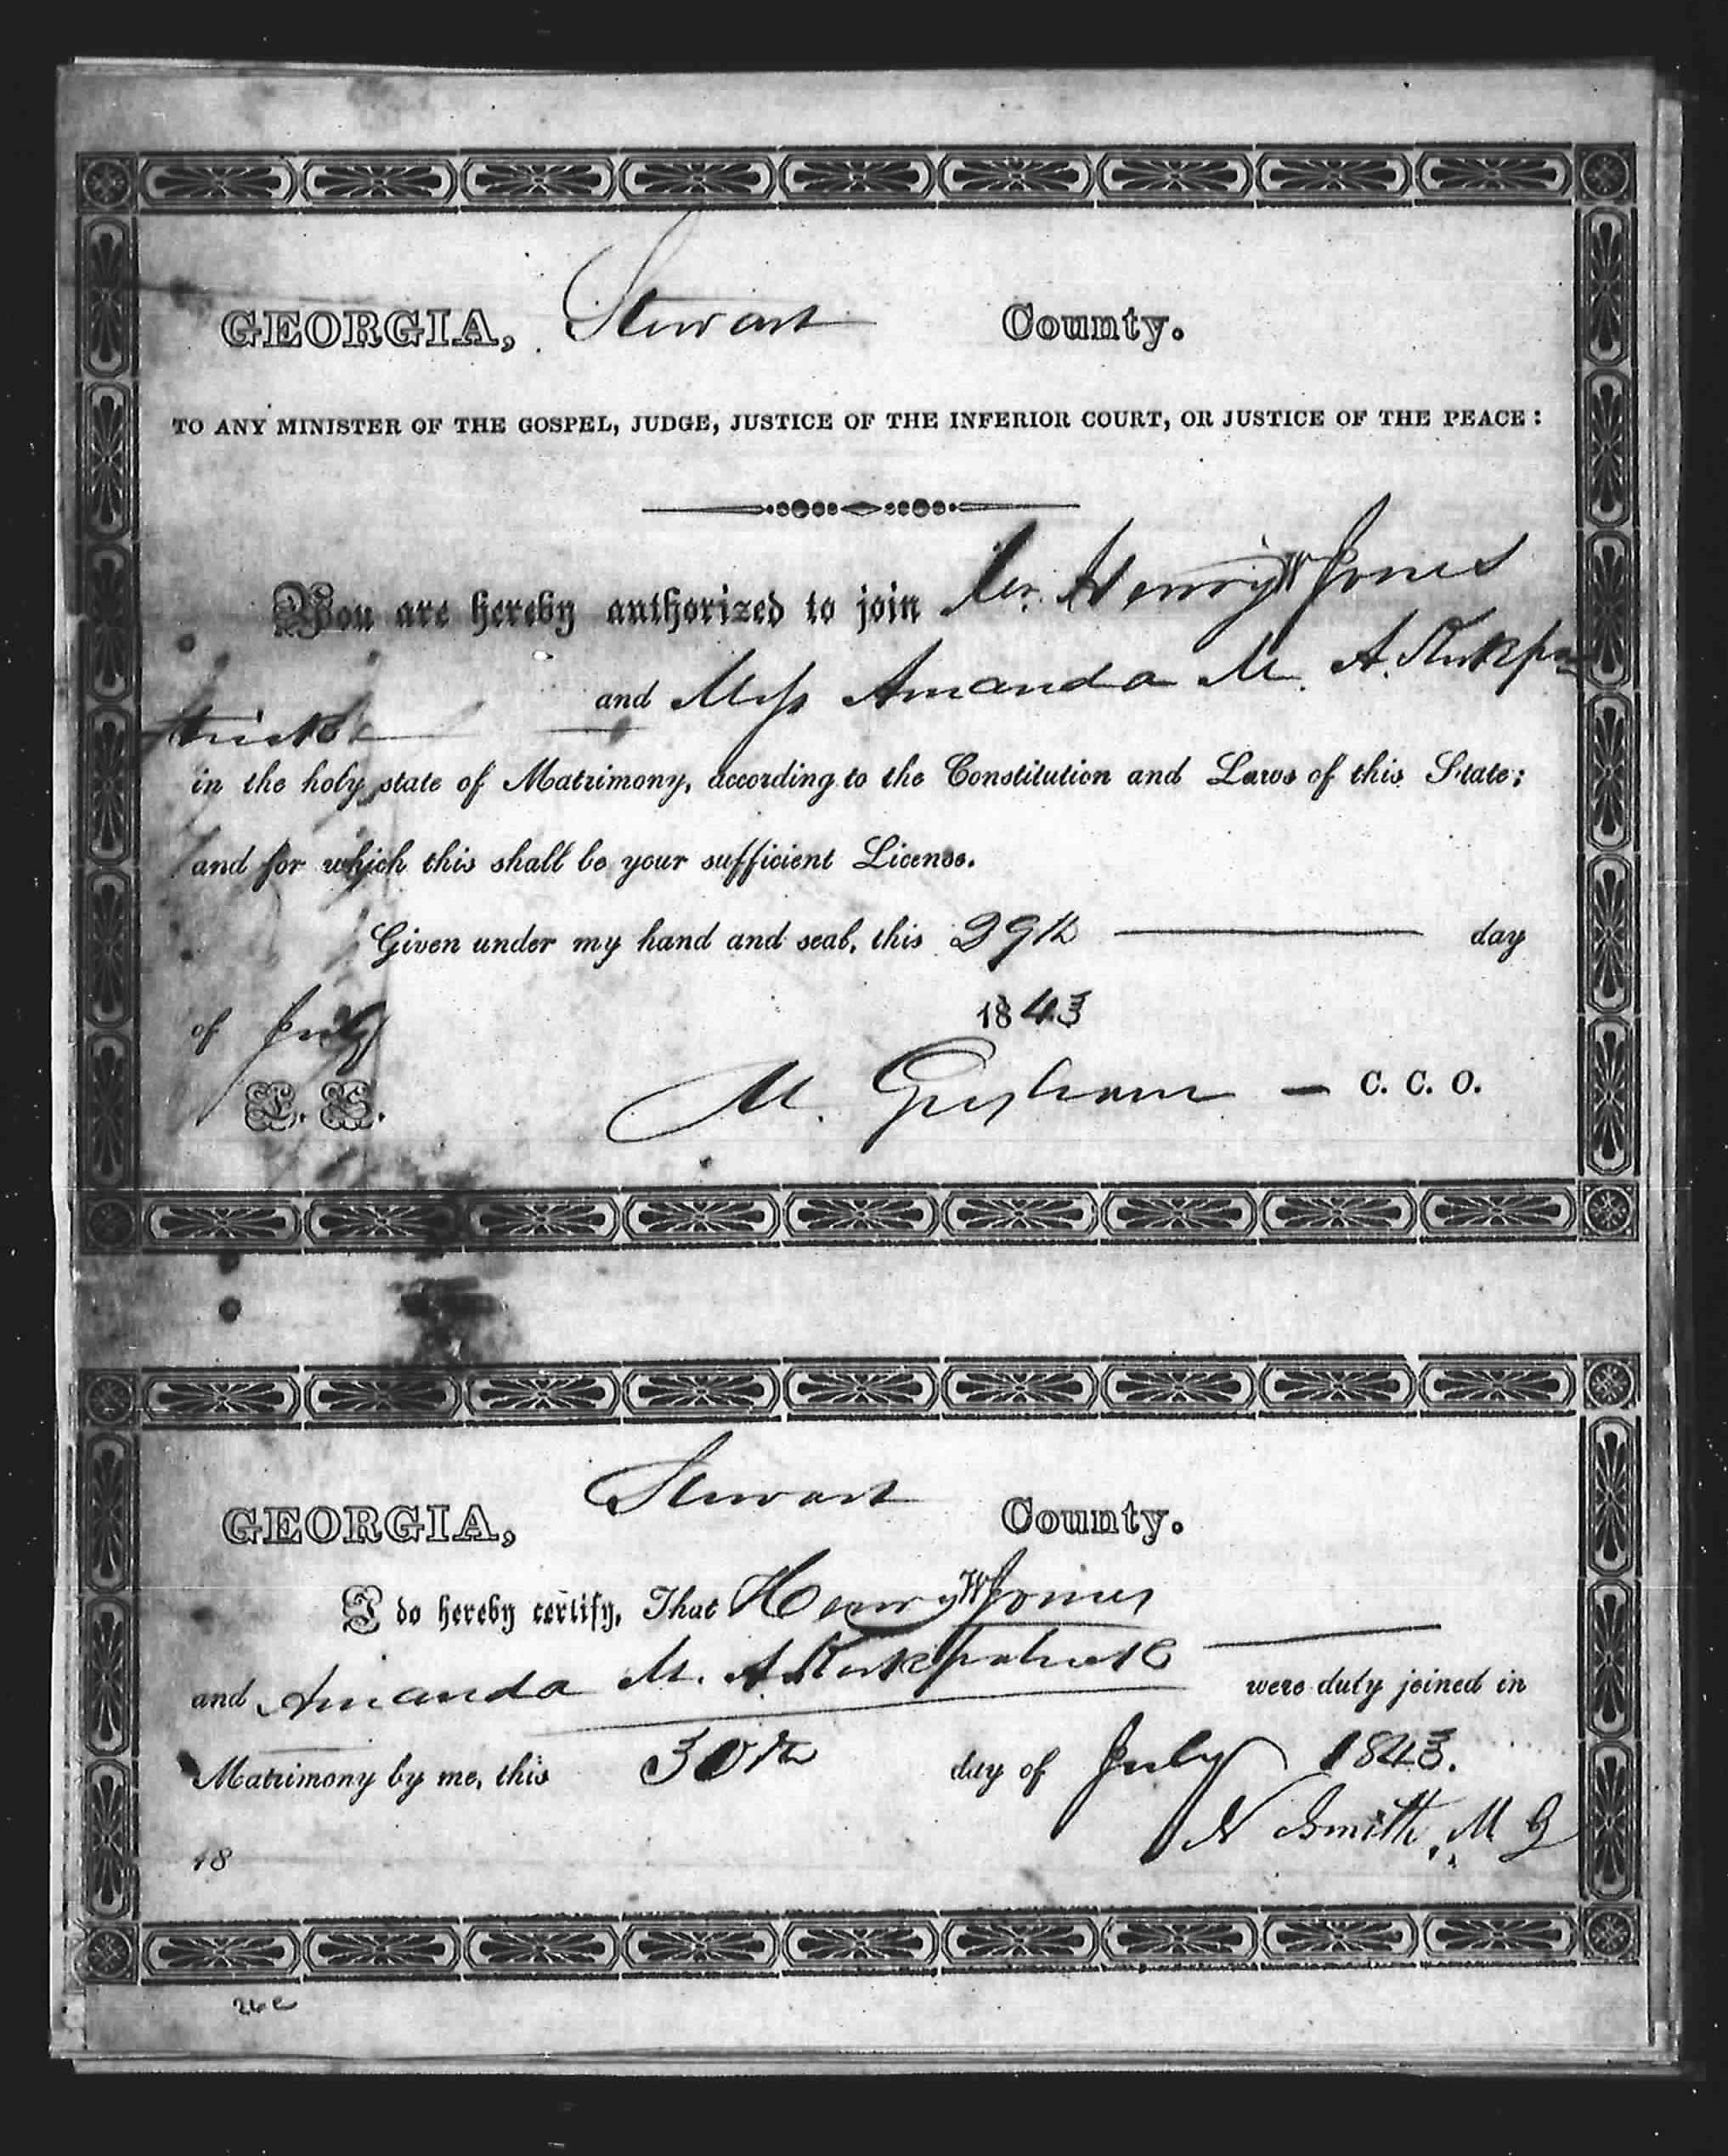 GEORGIA, Stewart County.
TO ANY MINISTER OF THE GOSPEL, JUDGE, JUSTICE OF THE INFERIOR COURT, OR JUSTICE OF THE PEACE:
You are hereby authorized to join Mr. Henry W Jones
and Miss Amanda M. A. Kirkpa-
trick
in the holy state of Matrimony, according to the Constitution and Laws of this State;
and for which this shall be your sufficient License.
Given under my hand and seal, this 29th day
of July 1843
L. S. M. Gresham C. C. O.
GEORGIA, Stewart County.
I do hereby certify, That Henry W Jones
and Amanda M. A. Kirkpatrick were duly joined in
Matrimony by me, this 30th day of July 1843.
N Smith, M G
18